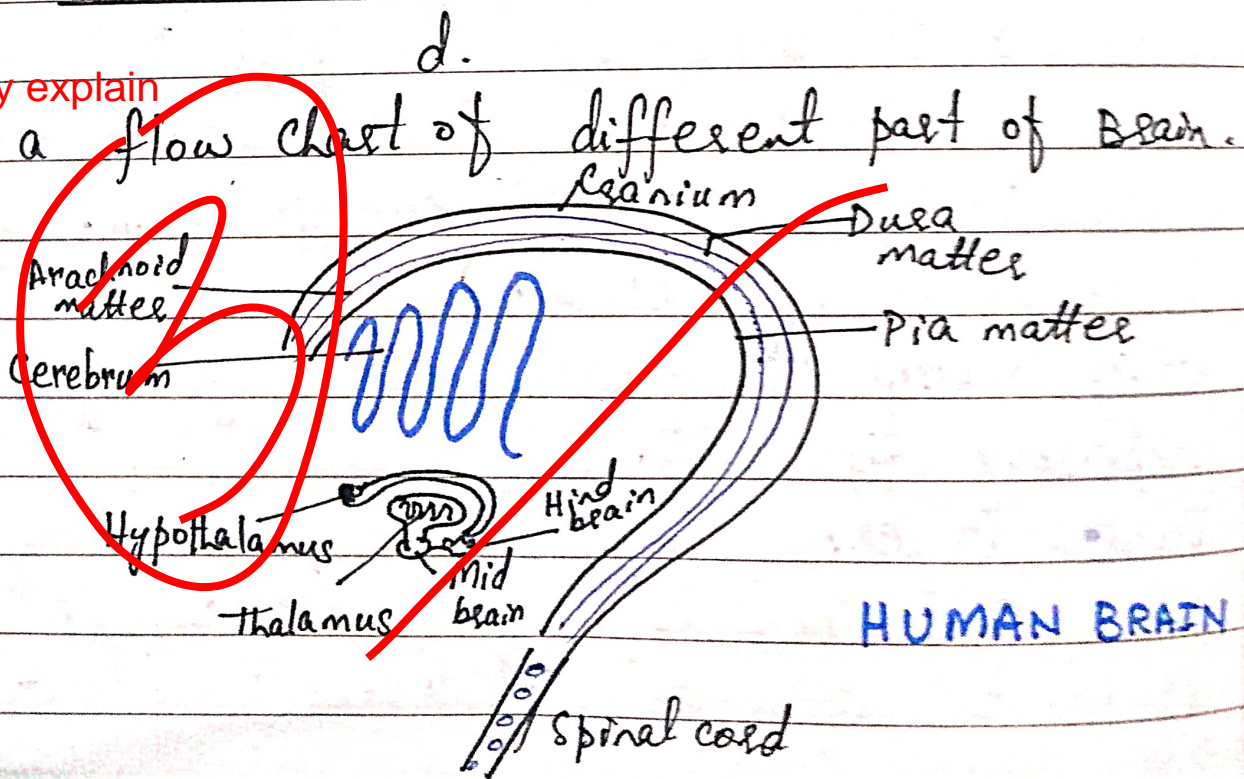 d.
y explain
a flow chart of different part of Brain.
Cranium
Dura
matter
Arachnoid
matter
Pia matter
Cerebrum
Hypothalamus
Hind
brain
Mid
brain
Thalamus
HUMAN BRAIN
Spinal cord
3